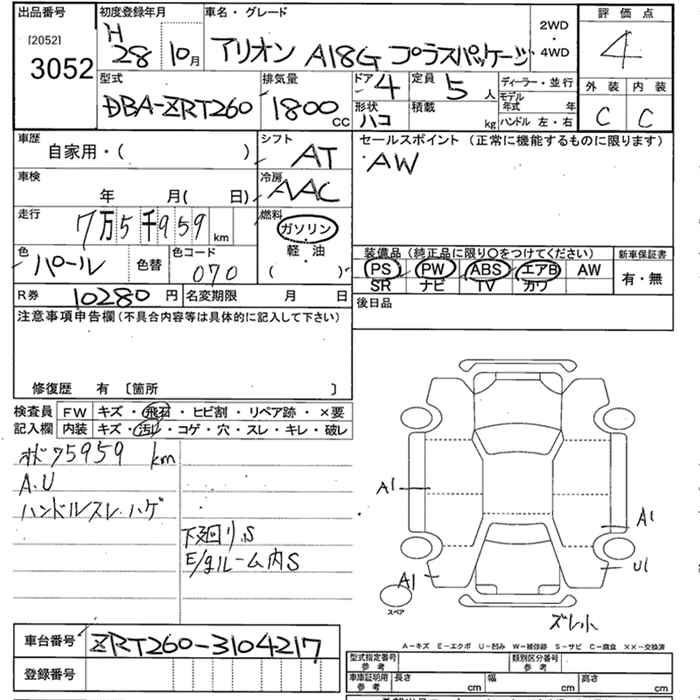 出品番号
[2052]
3052
初度登録年月
H 28 10月
車名・グレード
アリオン A18G プラスパッケージ
2WD
・
4WD
評価点
4
型式
DBA-ZRT260
排気量
1800 CC
ドア 4
定員 5 人
形状 ハコ
積載 kg
ディーラー・並行
モデル年式 年
ハンドル 左・右
外装 内装
C C
車歴
自家用・( )
シフト AT
セールスポイント (正常に機能するものに限ります)
AW
車検
年 月( 日)
冷房 AAC
走行
7万5千959 km
燃料
ガソリン
軽・油
( )
色 パール
色替
色コード 070
装備品 (純正品に限り○をつけてください)
新車保証書
PS PW ABS エアB AW
SR ナビ TV カワ
有・無
R券 10280 円
名変期限 月 日
後日品
注意事項申告欄 (不具合内容等は具体的に記入して下さい)
修復歴 有 〔箇所 〕
検査員
記入欄
FW キズ・飛石・ヒビ割・リペア跡・×要
内装 キズ・汚れ・コゲ・穴・スレ・キレ・破レ
75959 km
A.U
ハンドルスレ.ハゲ
下廻り.S
E/gルーム内S
A1
A1
A1
U1
スペア
ズレ小
A−キズ E−エクボ U−凹み W−補修跡 S−サビ C−腐食 ××−交換済
車台番号 ZRT260-3104217
登録番号
型式指定番号
参考
類別区分番号
参考
車庫証明用
参考
長さ cm
幅 cm
高さ cm